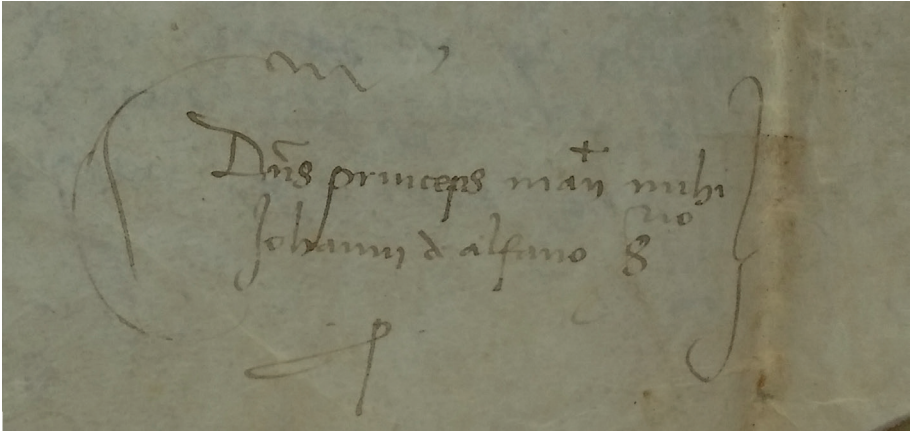 Dn̄s princeps man^t mihi
Johanni de alfano s^rio